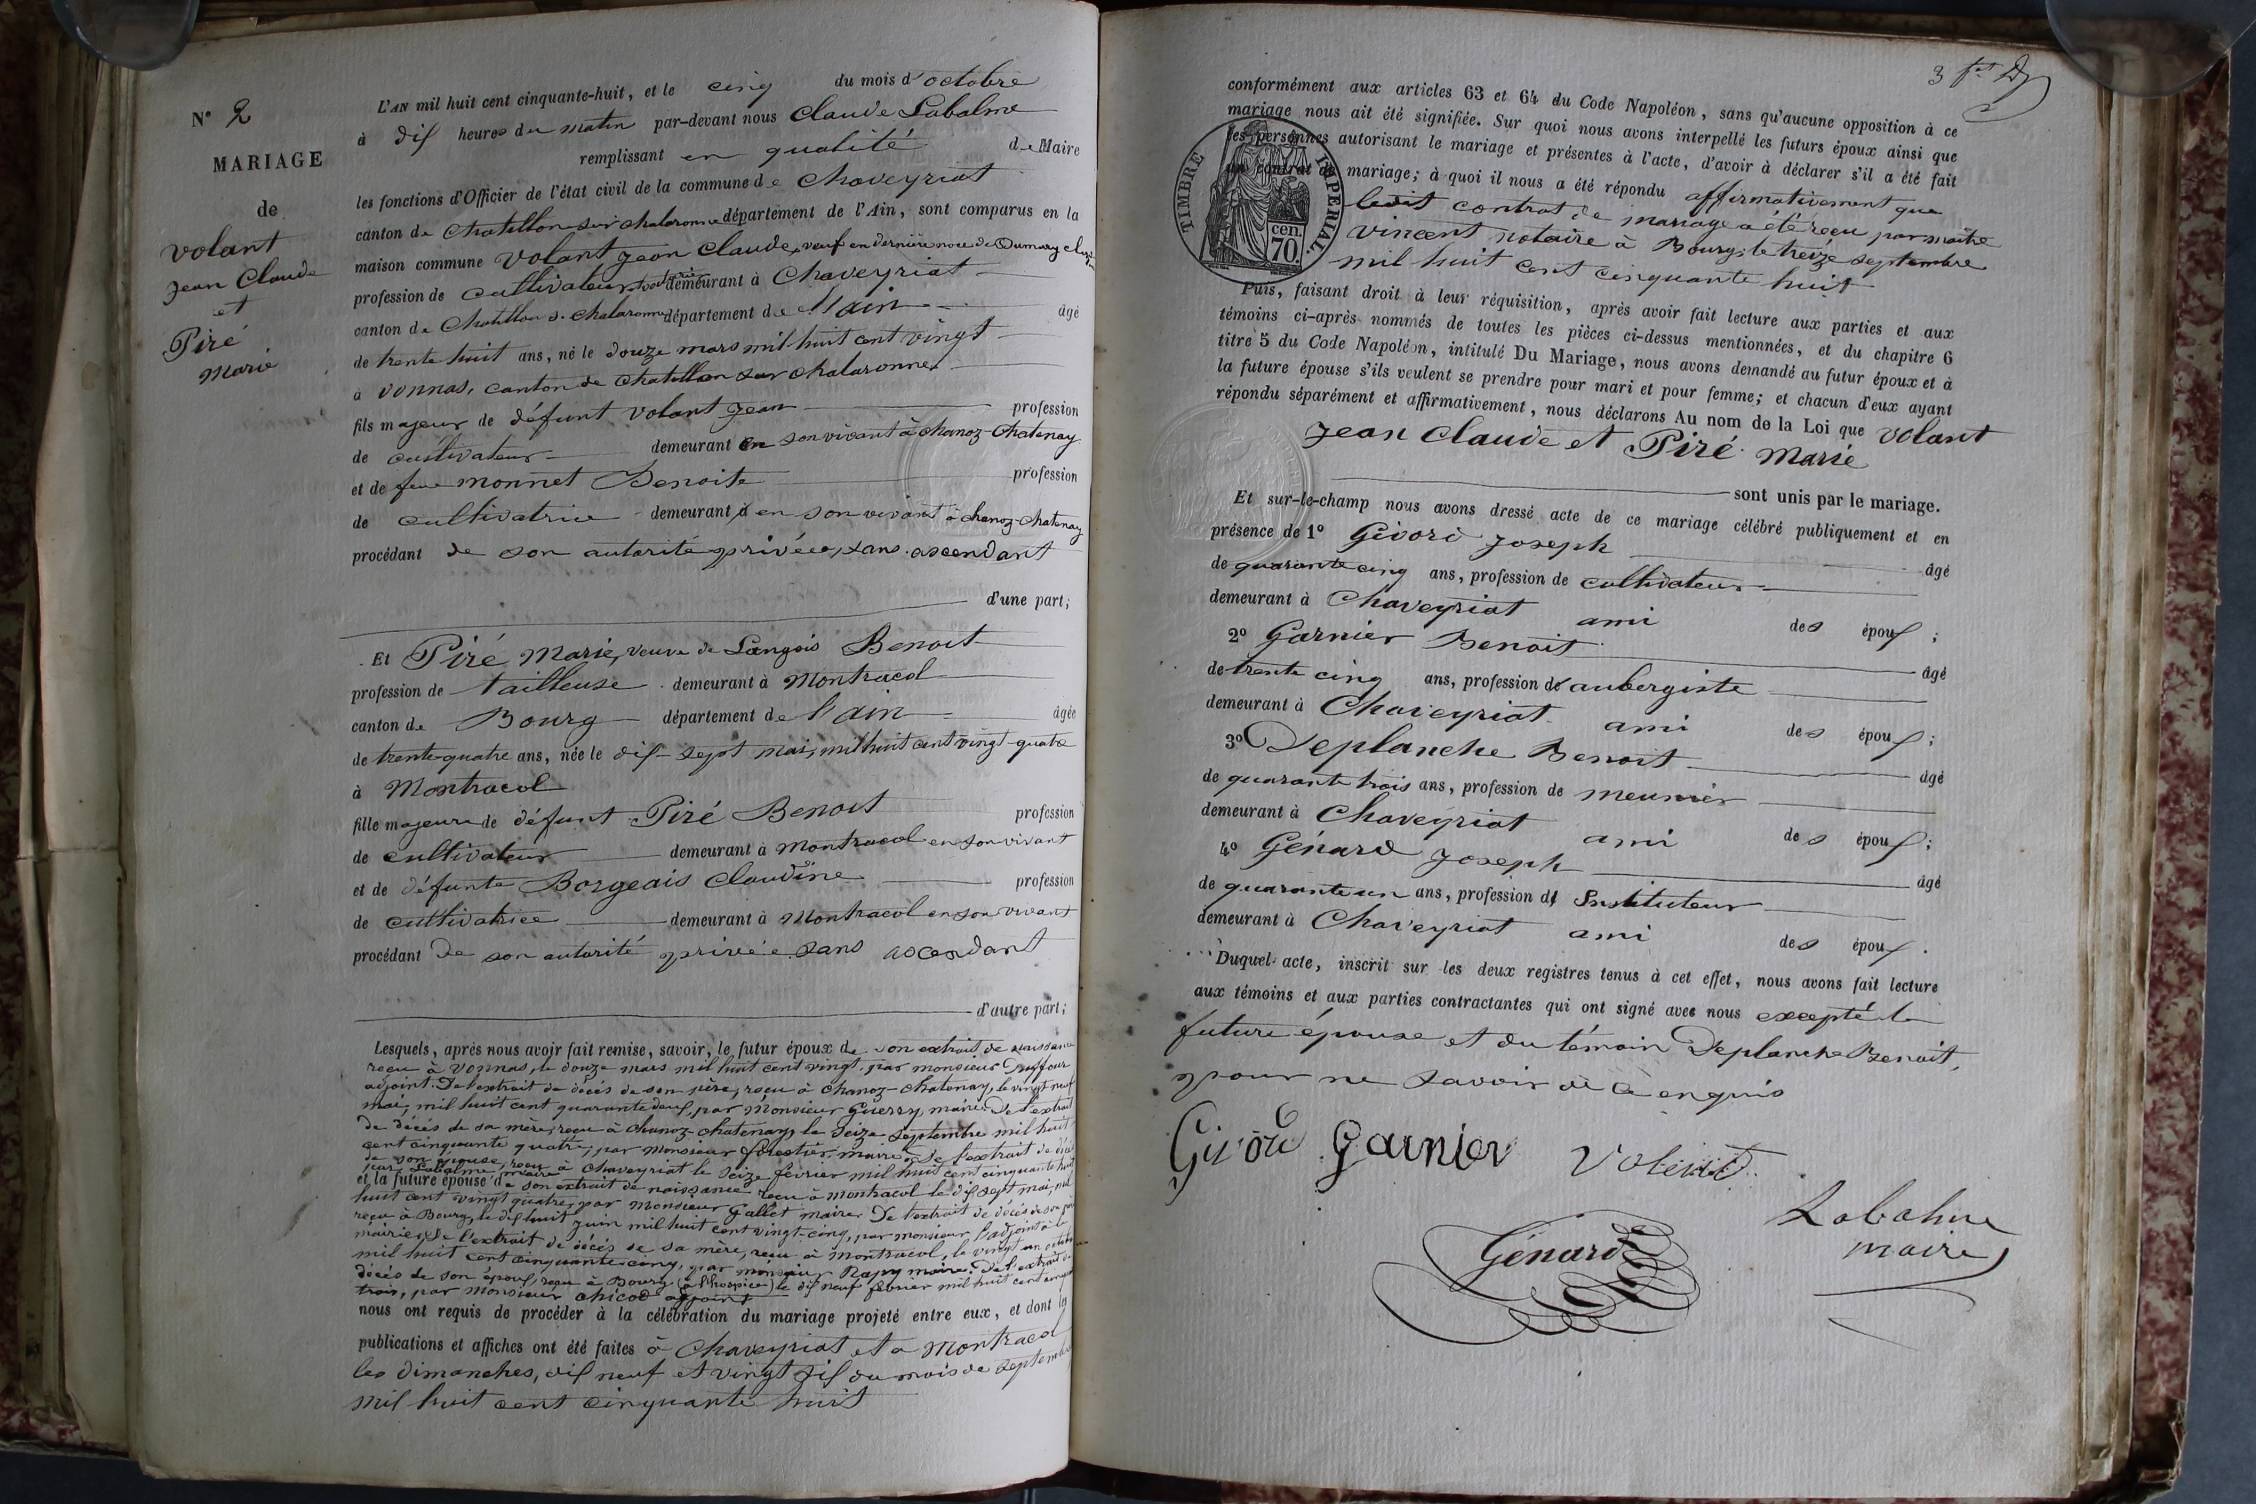 N° 2
MARIAGE
de
Volant
Jean Claude
et
Piré
Marie
L'AN mil huit cent cinquante-huit, et le cinq du mois d'octobre
à dix heures du matin par-devant nous Claude Labalme
remplissant en qualité de Maire
les fonctions d'Officier de l'état civil de la commune de Chaveyriat
canton de Chatillon sur chalaronne département de l'Ain, sont comparus en la
maison commune Volant Jean Claude, veuf en dernière noce de Dumarey
profession de cultivateur demeurant à Chaveyriat
canton de Chatillon s. chalaronne département de l'ain âgé
de trente huit ans, né le douze mars mil huit cent vingt
à Vonnas, canton de Chatillon sur chalaronne,
fils majeur de défunt Volant Jean profession
de cultivateur demeurant en son vivant à chanoz-Chatenay
et de feue monnet Benoite profession
de cultivatrice demeurant à en son vivant à chanoz-chatenay
procédant de son autorité privée, sans ascendant
d'une part;
Et Piré Marie, veuve de Langois Benoit
profession de tailleuse demeurant à Montracol
canton de Bourg département de l'ain âgée
de trente-quatre ans, née le dix-sept mai, mil huit cent vingt-quatre
à Montracol
fille majeure de défunt Piré Benoit profession
de cultivateur demeurant à Montracol en son vivant
et de défunte Borgeais Claudine profession
de cultivatrice demeurant à Montracol en son vivant
procédant de son autorité privée sans ascendant
d'autre part;
Lesquels, après nous avoir fait remise, savoir, le futur époux de son extrait de naissance
reçu à Vonnas, le douze mars mil huit cent vingt, par monsieur Duffour
adjoint. De l'extrait de décès de son père, reçu à chanoz-chatenay, le vingt neuf
mai, mil huit cent quarante deux, par Monsieur Guerry, maire. De l'extrait
de décès de sa mère, reçu à chanoz-chatenay, le seize septembre mil huit
cent cinquante quatre, par Monsieur forestier, maire. De l'extrait de décès
de son épouse, reçu à Chaveyriat le seize février mil huit cent cinquante huit
par Labalme maire
et la future épouse de son extrait de naissance reçu à montracol le dix sept mai, mil
huit cent vingt quatre, par Monsieur Gallet maire. De l'extrait de décès de son père
reçu à Bourg, le dix huit juin mil huit cent vingt-cinq, par monsieur l'adjoint à la
mairie, de l'extrait de décès de sa mère, reçu à montracol, le vingt un octobre
mil huit cent cinquante cinq, par monsieur Rapy maire. De l'extrait de
décès de son époux, reçu à Bourg (à l'hospice) le dix neuf février mil huit cent cinquante
trois, par Monsieur chicod adjoint
nous ont requis de procéder à la célébration du mariage projeté entre eux, et dont les
publications et affiches ont été faites à Chaveyriat et à Montracol
les dimanches, dix neuf et vingt six du mois de septembre
mil huit cent cinquante huit
conformément aux articles 63 et 64 du Code Napoléon, sans qu'aucune opposition à ce
mariage nous ait été signifiée. Sur quoi nous avons interpellé les futurs époux ainsi que
les personnes autorisant le mariage et présentes à l'acte, d'avoir à déclarer s'il a été fait
un contrat de mariage; à quoi il nous a été répondu affirmativement que
ledit contrat de mariage a été reçu par maître
Vincent notaire à Bourg, le treize septembre
mil huit cent cinquante huit
TIMBRE IMPERIAL.
70. cen.
Puis, faisant droit à leur réquisition, après avoir fait lecture aux parties et aux
témoins ci-après nommés de toutes les pièces ci-dessus mentionnées, et du chapitre 6
titre 5 du Code Napoléon, intitulé Du Mariage, nous avons demandé au futur époux et à
la future épouse s'ils veulent se prendre pour mari et pour femme; et chacun d'eux ayant
répondu séparément et affirmativement, nous déclarons Au nom de la Loi que Volant
Jean Claude et Piré Marie
sont unis par le mariage.
Et sur-le-champ nous avons dressé acte de ce mariage célébré publiquement et en
présence de 1° Givord Joseph âgé
de quarante cinq ans, profession de cultivateur
demeurant à Chaveyriat ami des époux;
2° Garnier Benoit âgé
de trente cinq ans, profession de aubergiste
demeurant à Chaveyriat ami des époux;
3° Deplanche Benoit âgé
de quarante trois ans, profession de meunier
demeurant à Chaveyriat ami des époux;
4° Génard Joseph âgé
de quarante un ans, profession d' Instituteur
demeurant à Chaveyriat ami des époux.
Duquel acte, inscrit sur les deux registres tenus à cet effet, nous avons fait lecture
aux témoins et aux parties contractantes qui ont signé avec nous excepté la
future épouse et du témoin Deplanche Benoit,
pour ne savoir de ce enquis
Givord Garnier Volant
Génard
Labalme
maire